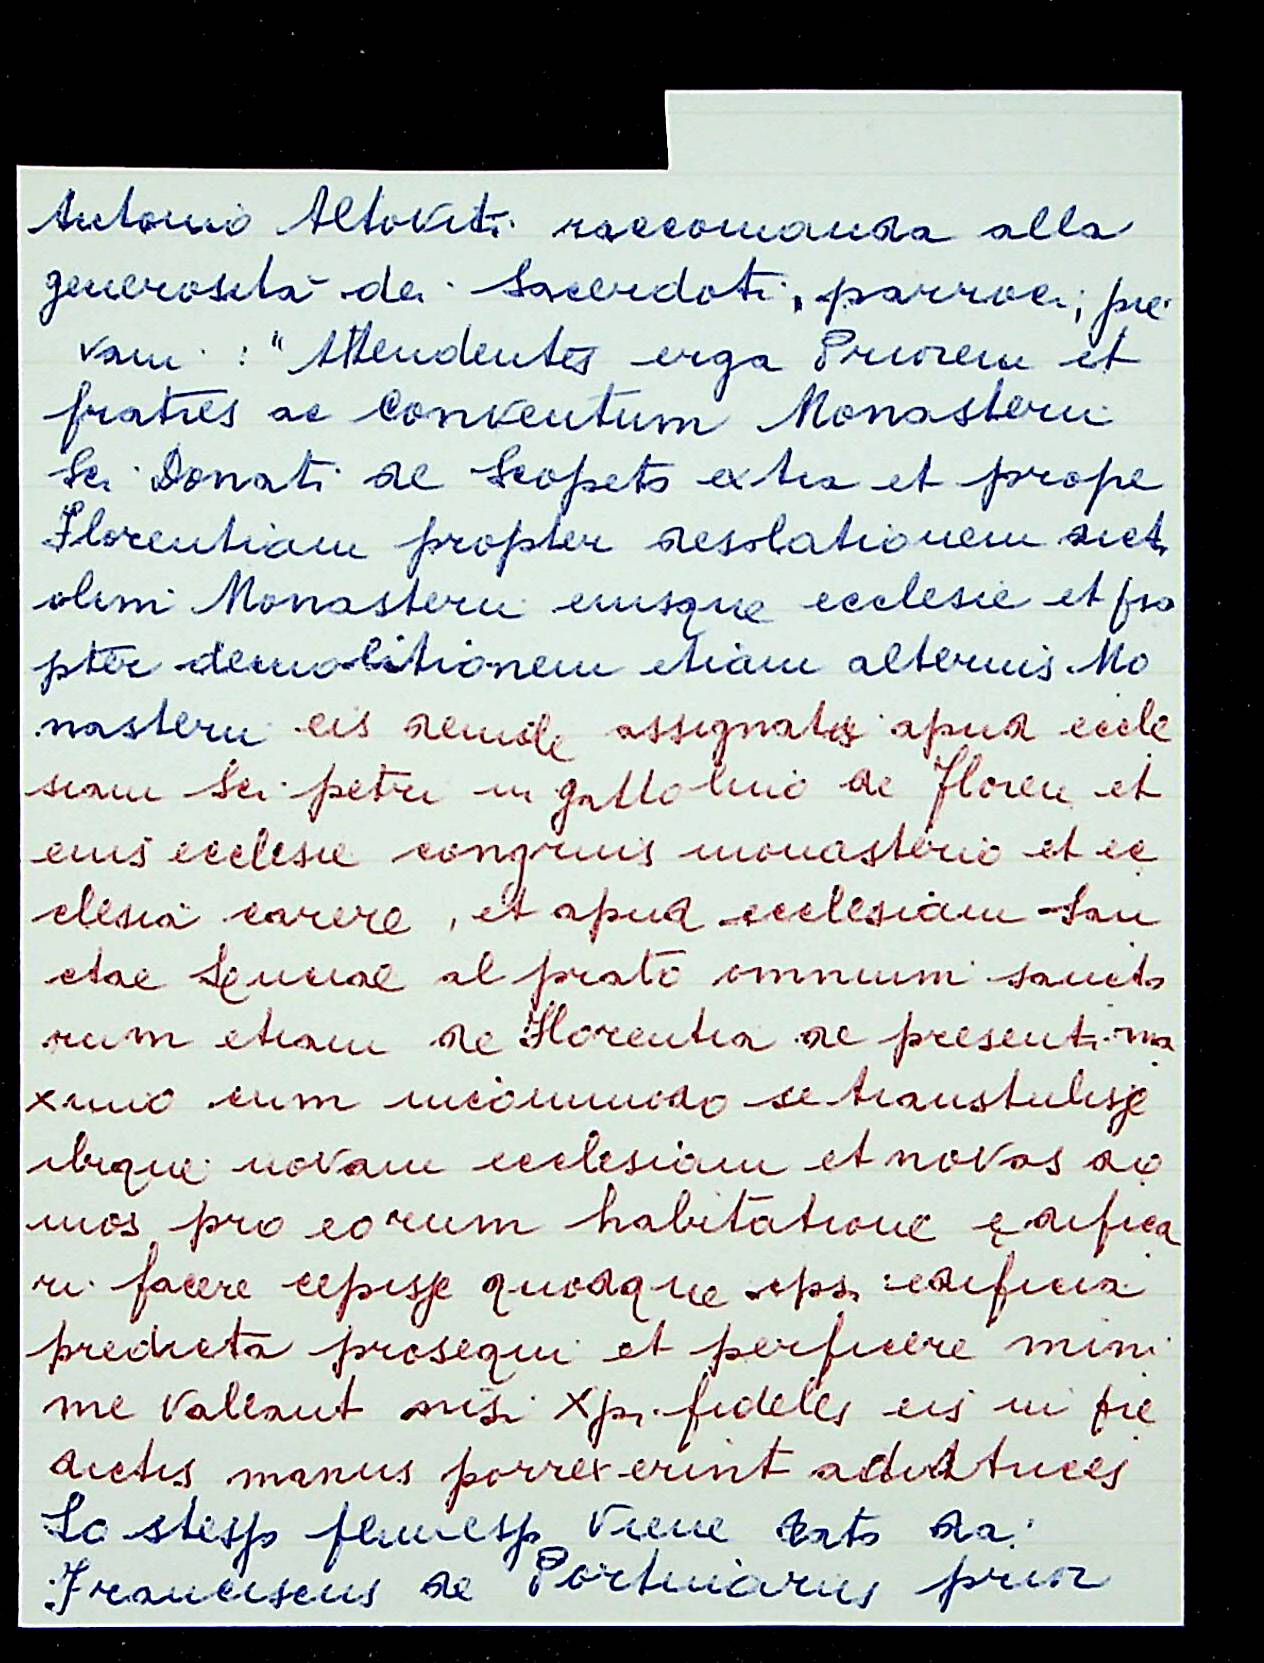 Antonio Altoviti raccomanda alla
generosità dei Sacerdoti, parroci, pie
vani : "Attendentes erga Priorem et
fratres ac Conventum Monasterii
Sci Donati de Scopeto extra et prope
Florentiam propter desolationem dicti
olim Monasterii eiusque ecclesie et pro
pter demolitionem etiam alterius Mo
nasterii eis assignatis apud eccle
siam Sci petri in gattolino de Floren et
eius ecclesie congruis monasterio et ec
clesia carere, et apud ecclesiam San
ctae al prato omnium sancto
rum etiam de Florentia de presenti ma
ximo cum incommodo se transtulisse
ibique novam ecclesiam et novas do
mos pro eorum habitatione ędifica
ri facere cepisse quodque ipsi edificia
predicta prosequi et perficere mini
me valeant nisi Xpi fideles eis in pre
dictis manus porrexerint adiutrices
Lo stesso viene dato da:
Franciscus de Portinariis prior